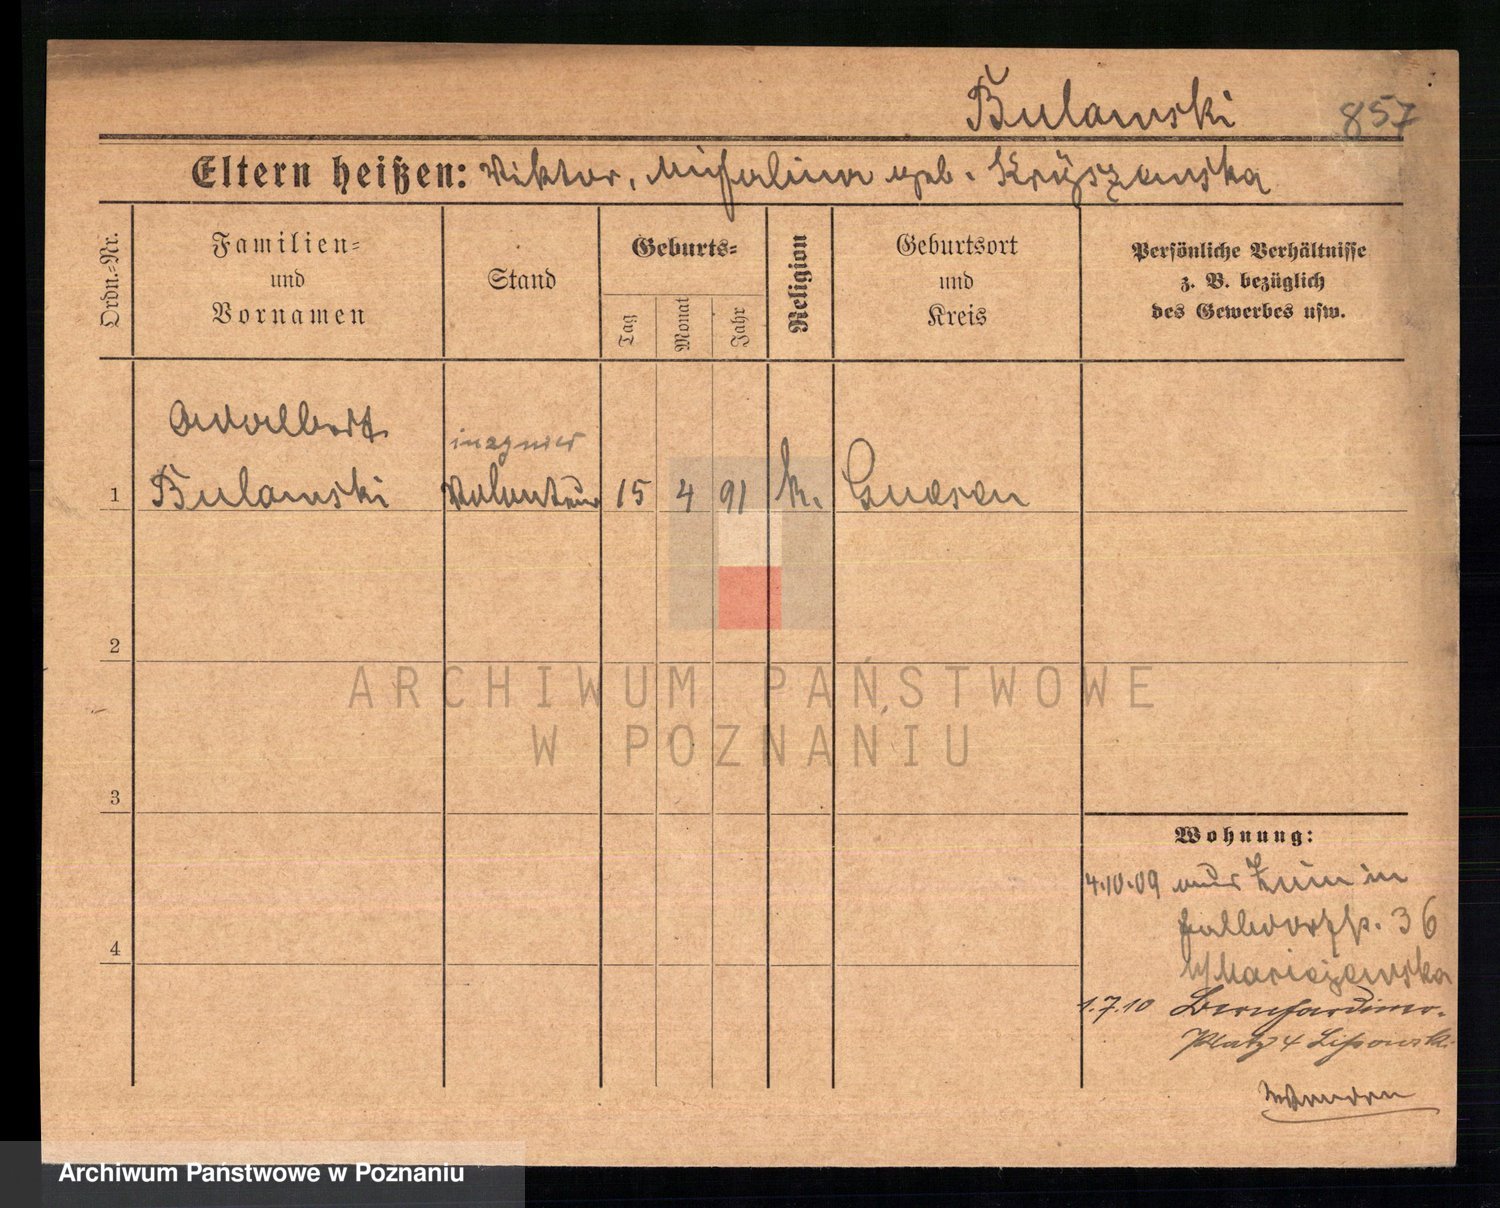 Bulawski 857
Eltern heißen: Viktor, Michalina geb. Kryszewska
Ordn.-Nr.
Familien-
und
Vornamen
Stand
Geburts-
Tag
Monat
Jahr
Religion
Geburtsort
und
Kreis
Persönliche Verhältnisse
z. B. bezüglich
des Gewerbes usw.
Adalbert
1 Bulawski Volonteur 15 4 91 k. Gnesen
2
3
4
ARCHIWUM PAŃSTWOWE
W POZNANIU
Wohnung:
4.10.09 aus Znin in
Halbdorfstr. 36
1.7.10 Bernhardiner-
Platz 4
Archiwum Państwowe w Poznaniu